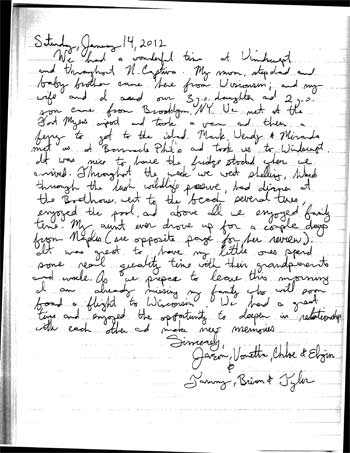 Saturday, January 14, 2012
We had a wonderful time at Windswept
and throughout N. Captiva. My mom, stepdad and
baby brother came here from Wisconsin; and my
wife and I and our 3 y.o. daughter and 2 y.o.
son came from Brooklyn, NY. We met at the
Fort Myers airport and took a van and then a
ferry to get to the island. Mark, Wendy & Miranda
met us at Barnacle Phil's and took us to Windswept.
It was nice to have the fridge stocked when we
arrived. Throughout the week we went shelling, hiked
through the lush wildlife preserve, had dinner at
the Boathouse, went to the beach several times,
enjoyed the pool, and above all we enjoyed family
time. My aunt even drove up for a couple days
from Naples (see opposite page for her review).
It was great to have my little ones spend
some real quality time with their grandparents
and uncle. As we prepare to leave this morning
I am already missing my family who will soon
board a flight to Wisconsin. We had a great
time and enjoyed the opportunity to deepen in relationship
with each other and make new memories.
Sincerely,
Jason, Vonetta, Chloe &
&
Tammy, Brian & Tyler